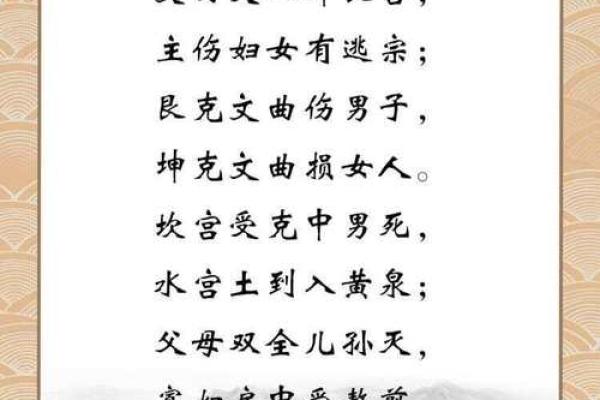 主伤妇女有逃宗；
艮克文曲伤男子，
坤克文曲损女人。
坎宫受克中男死，
水宫土到入黄泉；
父母双全儿孙夭，
寡妇房中受熬煎